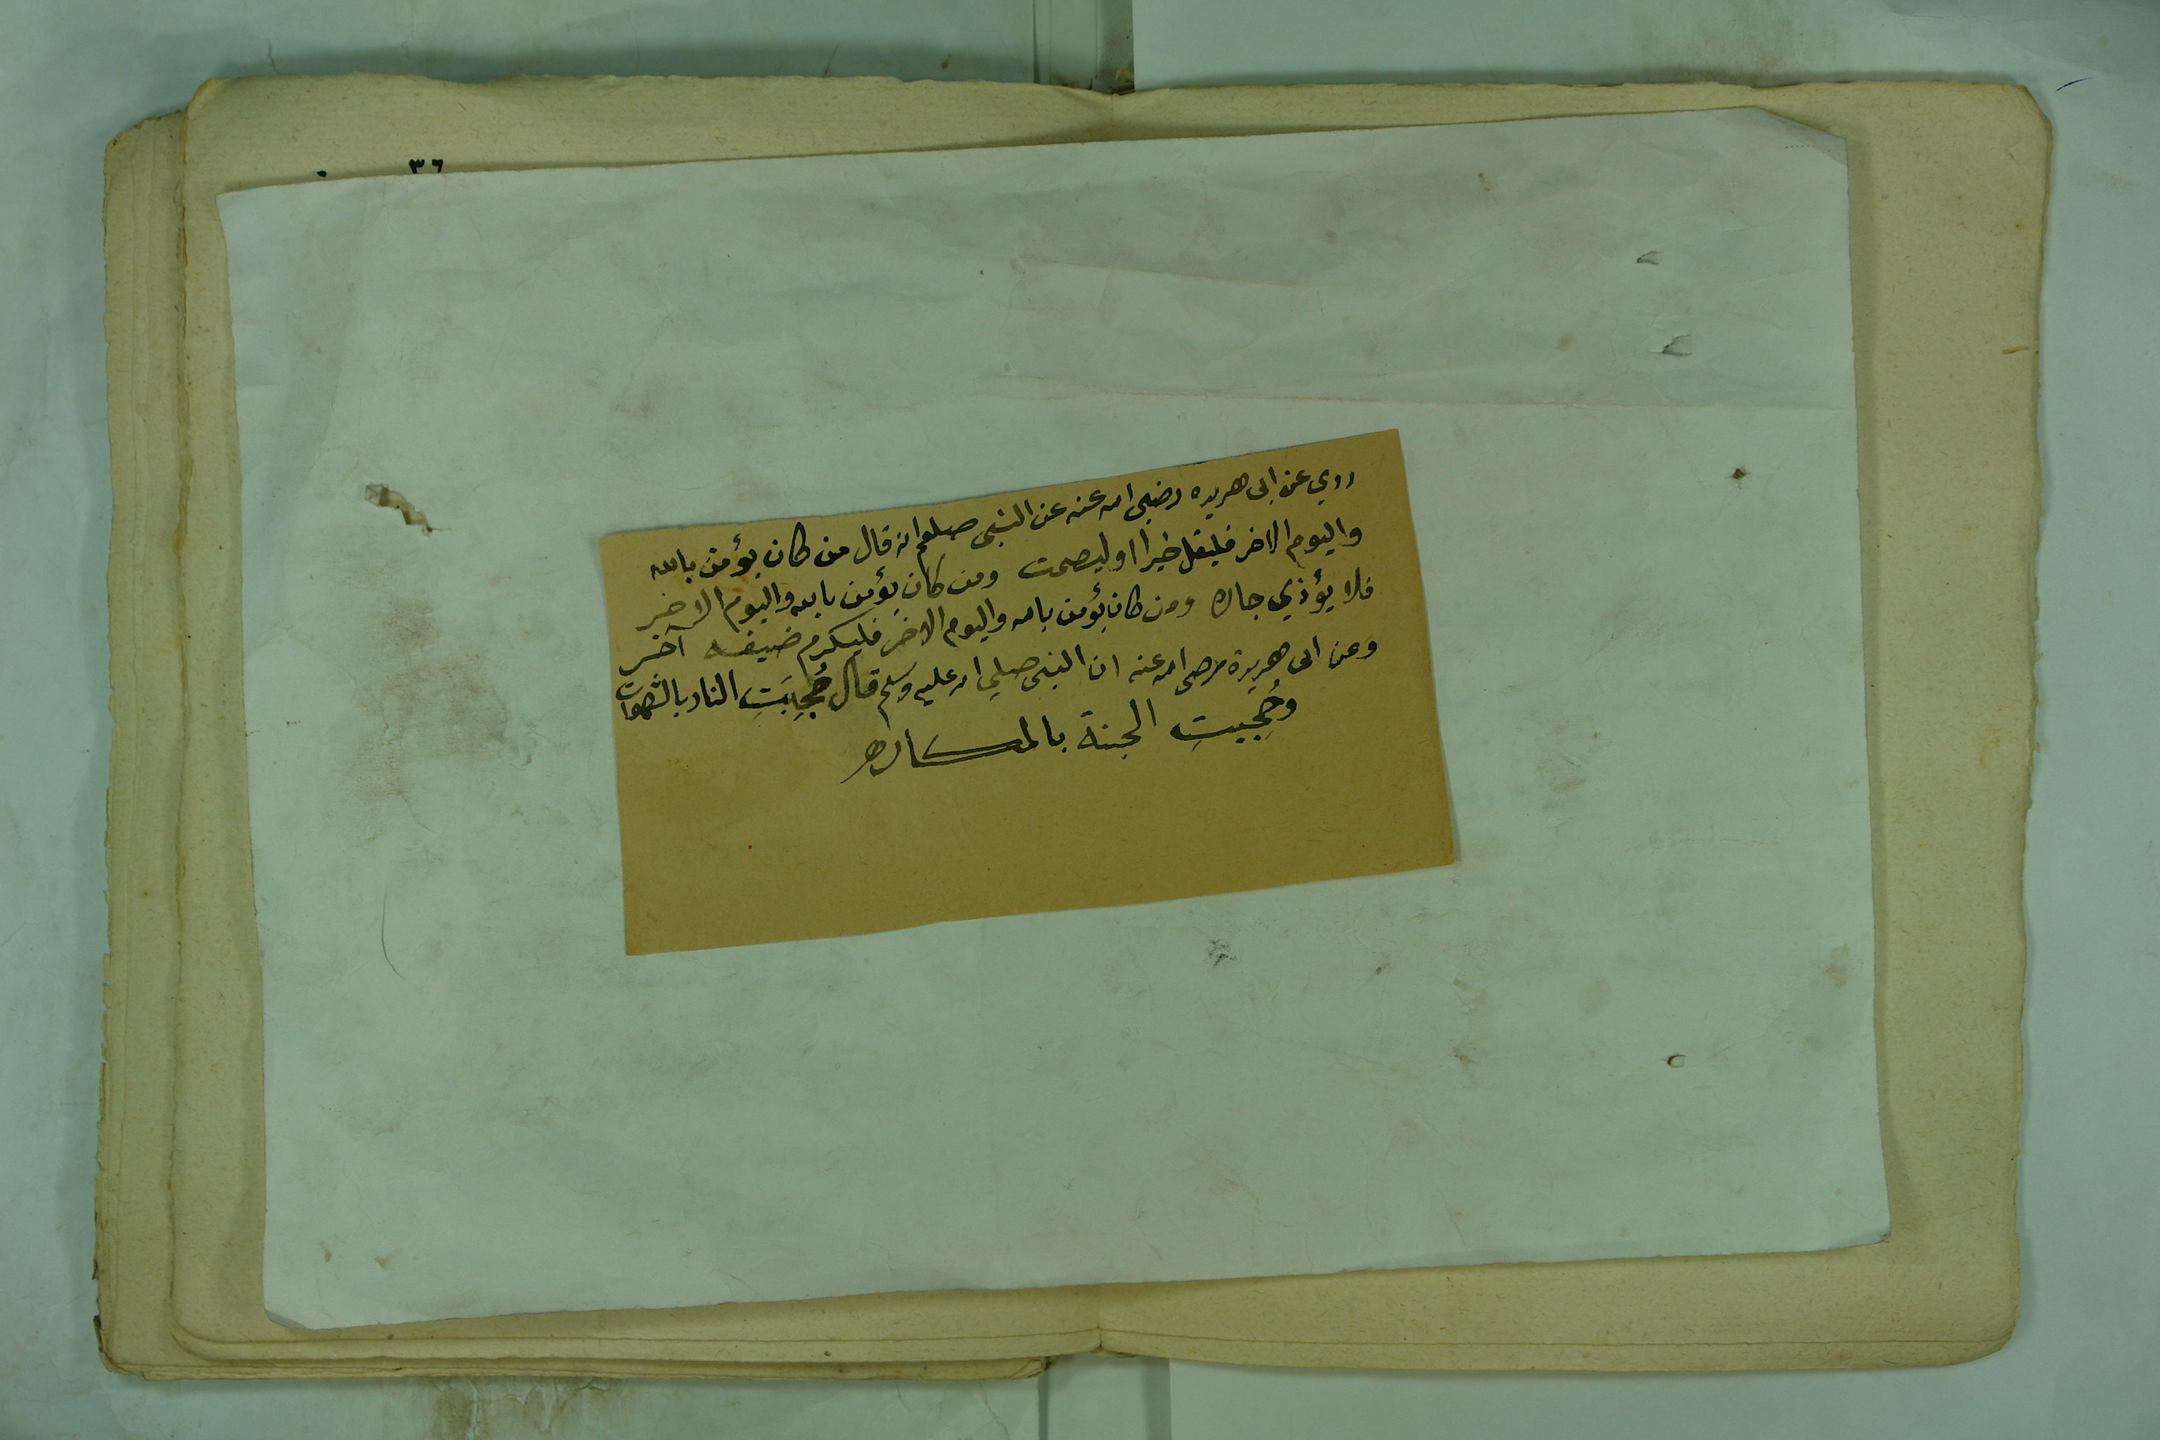 ٣٦
روي عن ابى هريره رضى الله عنه عن النبى صلعم انه قال من كان يؤمن بالله
واليوم الاخر فليقل خيرا او ليصمت ومن كان يؤمن بالله واليوم الاخر
فلا يؤذي جاره ومن كان يؤمن بالله واليوم الاخر فليكرم ضيفه آخر
وعن ابى هريرة رضى الله عنه ان النبى صلي الله عليه وسلم قال حُجِبَتِ النار بالشهوات
وحُجِبتِ الجنة بالمكاره